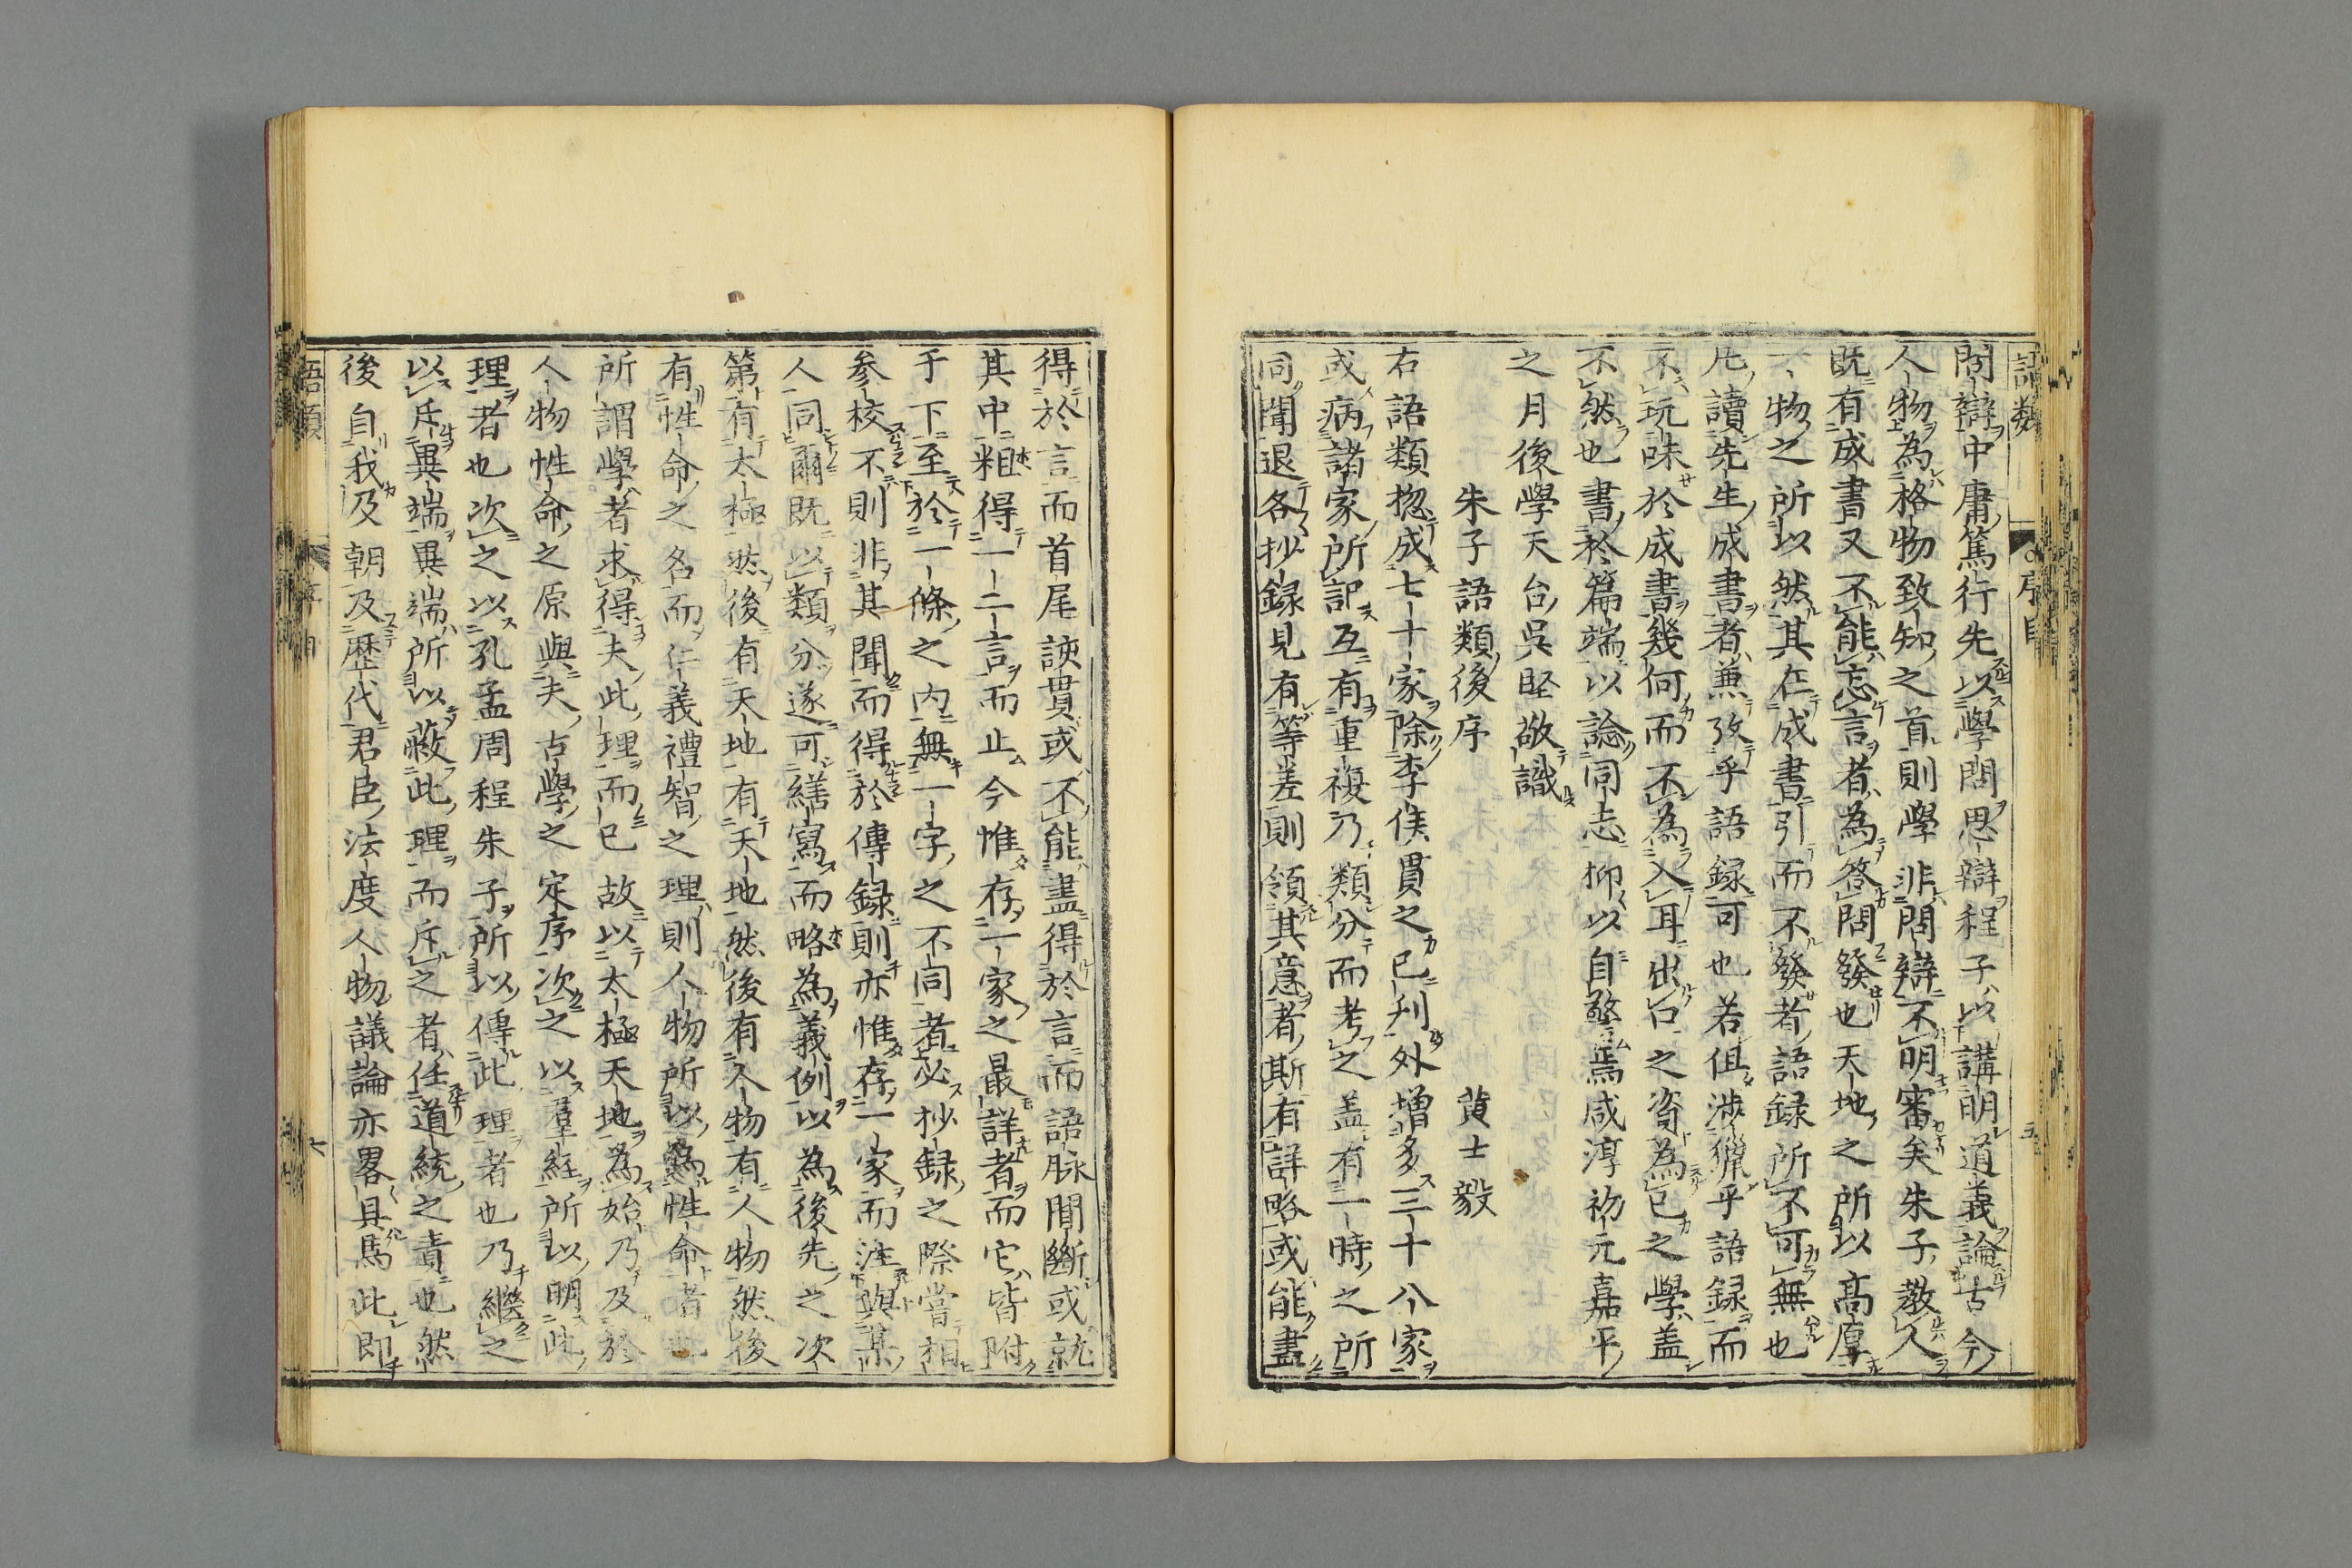 語類
序目
五
問辯中庸篤行先以學問思辯程子以講明道義論古今
人物為格物致知之首則學非問辯不明審矣朱子教人
既有成書又不能忘言者為答問發也天地之所以高厚
一物之所以然其在成書引而不發者語録所不可無也
凡讀先生成書者兼攷乎語録可也若但渉獵乎語録而
不玩味於成書幾何而不為入耳出口之資為已之學盖
不然也書於篇端以諗同志抑以自警焉咸淳初元嘉平
之月後學天台吳堅敬識
朱子語類後序
黄士毅
右語類揔成七十家除李侯貫之已刋外增多三十八家
或病諸家所記互有重複乃類分而考之盖有一時之所
同聞退各抄録見有等差則領其意者斯有詳略或能盡
得於言而首尾該貫或不能盡得於言而語脉間斷或就
其中粗得一二言而止今惟存一家之最詳者而它皆附
于下至於一條之内無一字之不同者必抄録之際嘗相
參校不則非其聞而得於傳録則亦惟存一家而注與某
人同爾既以類分遂可繕寫而略為義例以為後先之次
第有太極然後有天地有天地然後有人物有人物然後
有性命之名而仁義禮智之理則人物所以為性命者也
所謂學者求得夫此理而已故以太極天地為始乃及於
人物性命之原與夫古學之定序次之以羣經所以明此
理者也次之以孔孟周程朱子所以傳此理者也乃繼之
以斥異端異端所以蔽此理而斥之者任道統之責也然
後自我及朝及歴代君臣法度人物議論亦畧具焉此即
語類